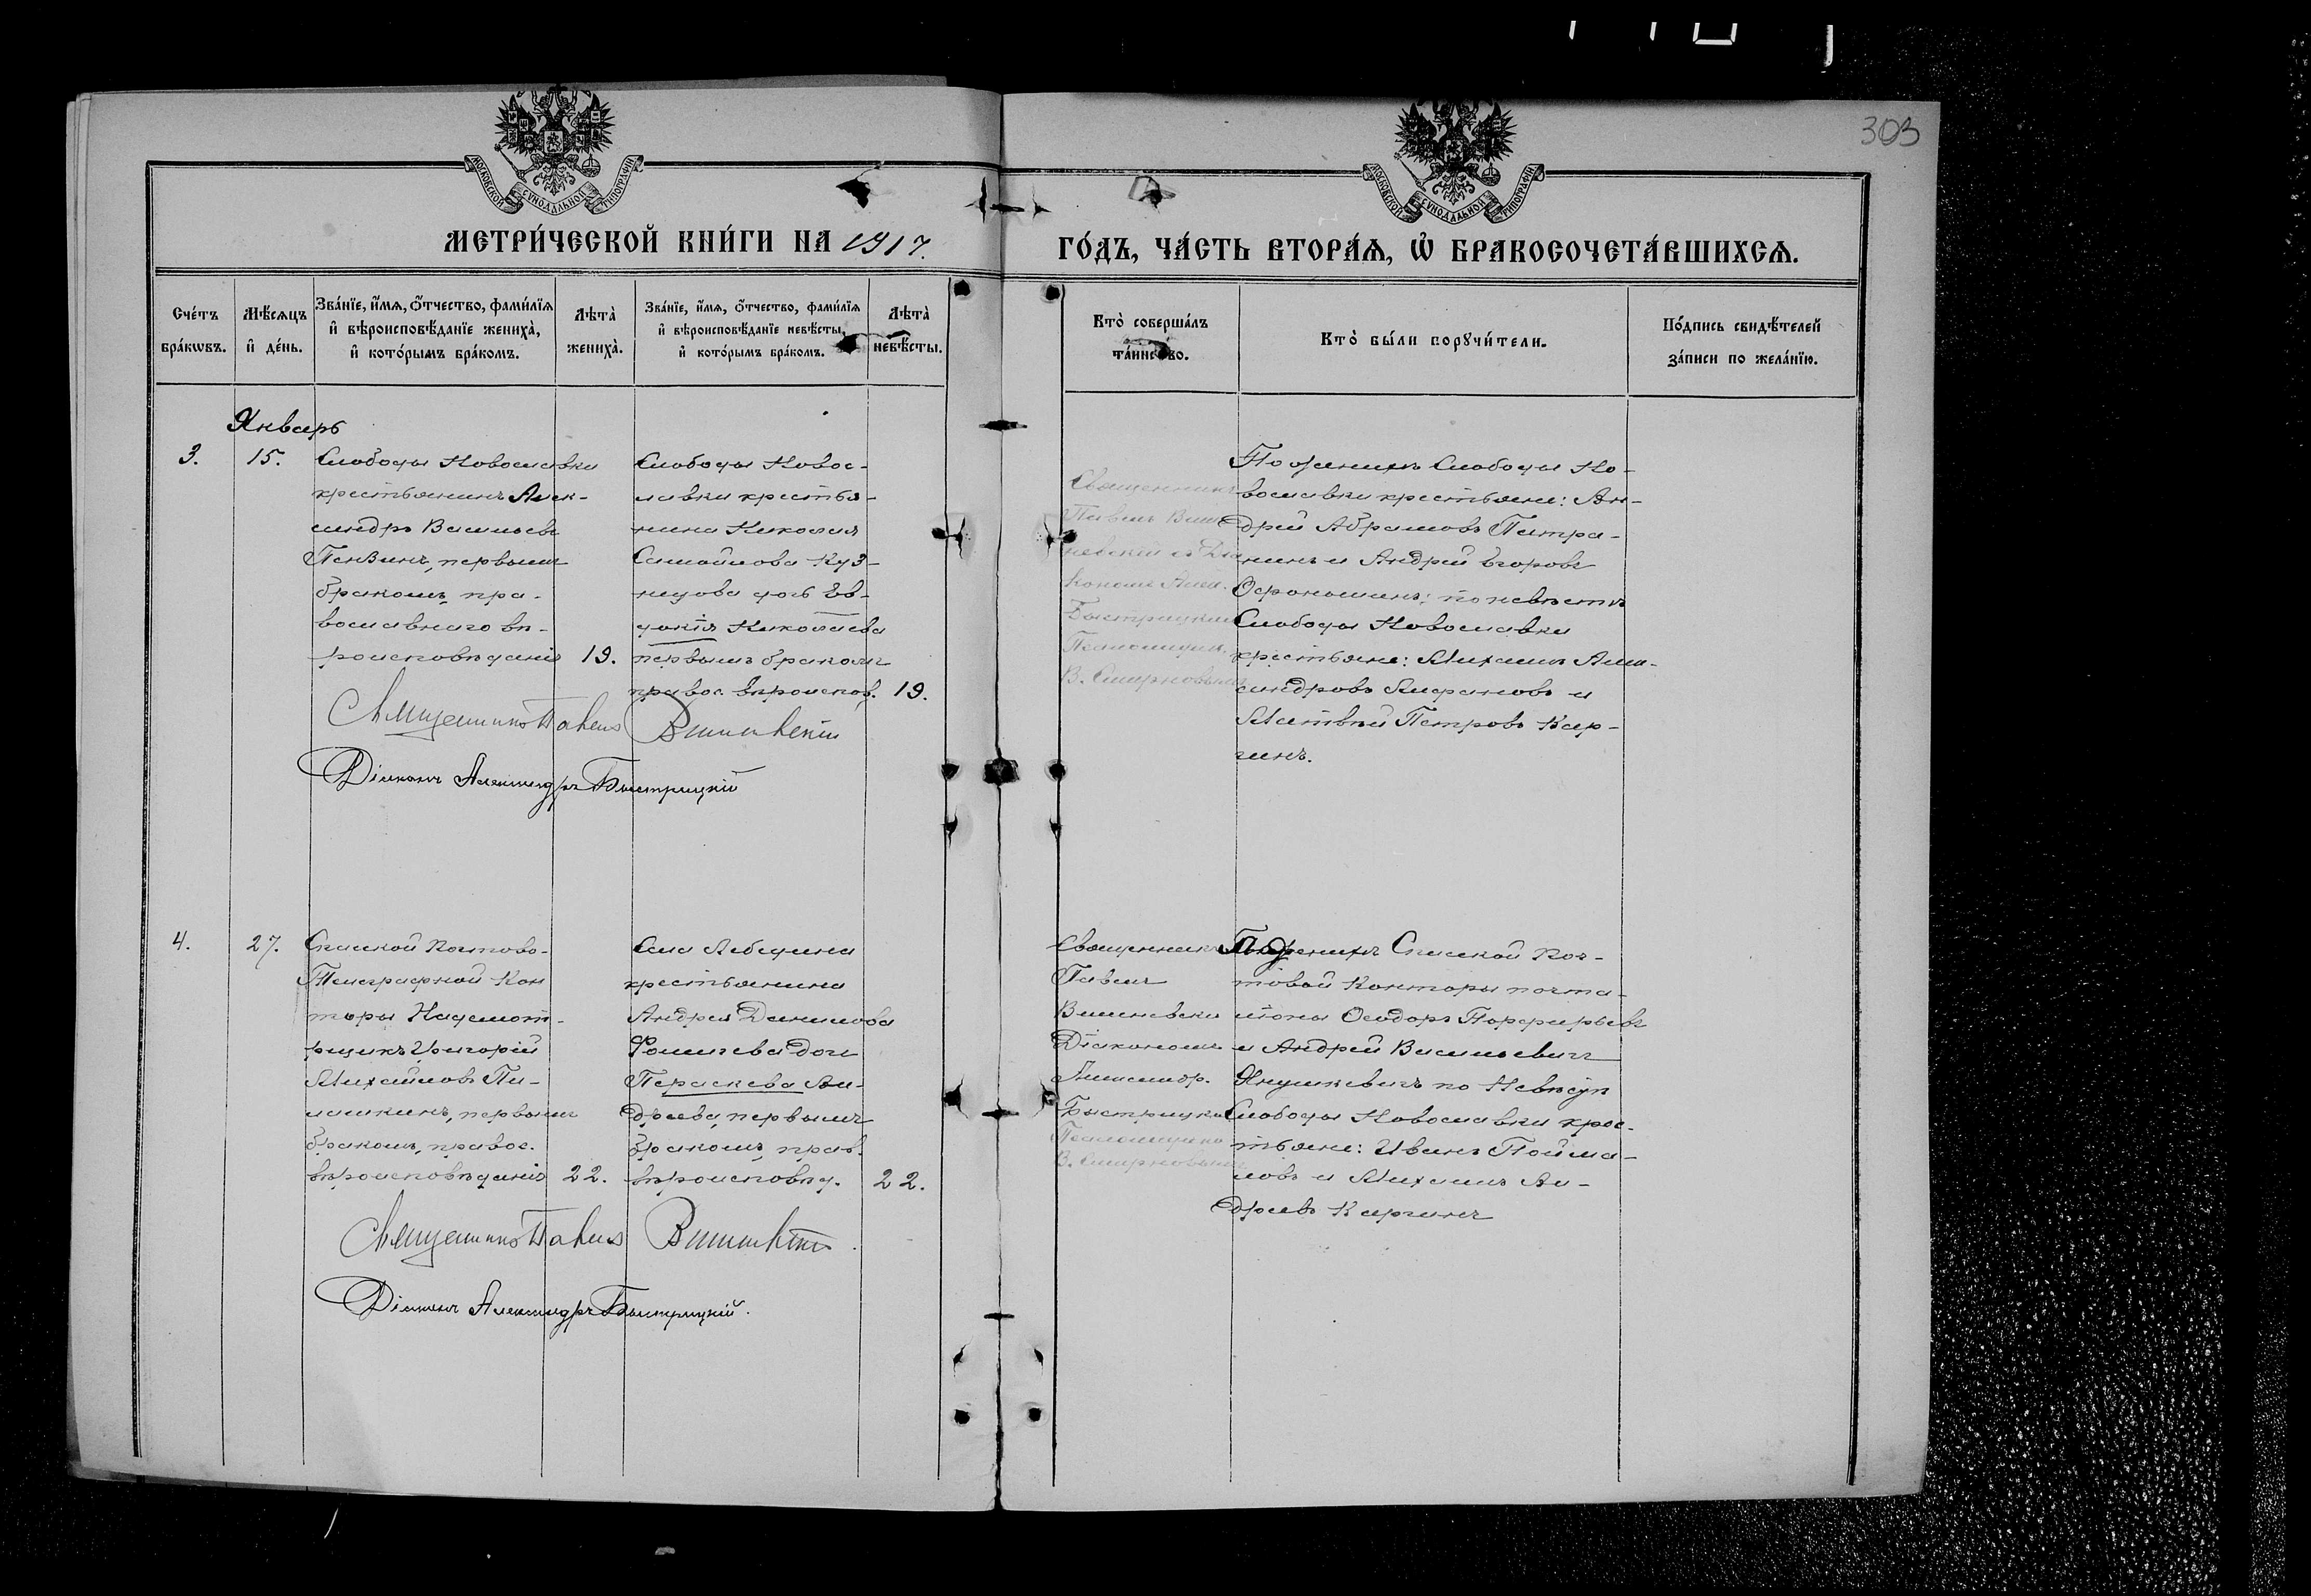 303
МОСКОВСКОЙ СѴНОДАЛЬНОЙ ТИПОГРАФІИ
МОСКОВСКОЙ СѴНОДАЛЬНОЙ ТИПОГРАФІИ
МЕТРИ́ЧЕСКОЙ КНИ́ГИ НА 1917.
ГО́ДЪ, ЧА́СТЬ ВТОРА́Ѧ, Ѽ БРАКОСОЧЕТА́ВШИХСѦ.
Сче́тъ бра́кѡвъ.
Мѣ́сѧцъ и҆ де́нь.
Зва́нїе, и҆́мѧ, ѻ҆́тчество, фами́лїѧ
и҆ вѣроисповѣ́данїе жениха̀,
и҆ кото́рымъ бра́комъ.
Лѣта̀ жениха̀.
Зва́нїе, и҆́мѧ, ѻ҆́тчество, фами́лїѧ
и҆ вѣроисповѣ́данїе невѣ́сты,
и҆ кото́рымъ бра́комъ.
Лѣта̀ невѣ́сты.
Кто̀ соверша́лъ
та́инство.
Кто̀ бы́ли порꙋчи́тели.
По́дпись свидѣ́телей
за́писи по жела́нїю.
Январь
3.
15.
Слободы Новославки
крестьянинъ Алек-
сандръ Васильевъ
Пензинъ, первымъ
бракомъ, пра-
вославнаго вѣ-
роисповѣданія
19.
Слободы Новос-
лавки крестья-
нина Николая
Самойлова Куз-
нецова дочь Ев-
докія Николаева
первымъ бракомъ
правос. вѣроиспов.
19.
Священникъ
Павелъ Виш-
невскій съ Діа-
кономъ Алек.
Быстрицкимъ
Псаломщик.
В. Смирновымъ
По женихѣ Слободы Но-
вославки крестьяне: Ан-
дрей Абрамовъ Петра-
нинъ и Андрей Егоровъ
по невѣстѣ
Слободы Новославки
крестьяне: Михаилъ Алек-
сандровъ и
Матвѣй Петровъ Кар-
гинъ.
Священникъ Павелъ Вишневскій
Діаконъ Александръ Быстрицкій
4.
27.
Спасской Почтово-
Телеграфной Кон
торы Надсмот-
рщикъ Григорій
Михайловъ Па-
лашкинъ, первымъ
бракомъ, правос.
вѣроисповѣданія
22.
Села Лебедина
крестьянина
Андрея Данилова
Фомичева дочь
Параскева Ан-
дреева, первымъ
бракомъ, прав.
вѣроисповѣд.
22.
Священникъ
Павелъ
Вишневски
Діакономъ
Александр.
Быстрицки
Псаломщико
В. Смирновымъ
По женихѣ Спасской Поч-
товой Конторы почта-
ліоны Ѳеодоръ Порфирьевъ
и Андрей Васильевичъ
Янушкевичъ по Невѣстѣ
Слободы Новославки крес-
тьяне: Иванъ Пойма-
ловъ и Михаилъ Ан-
дреевъ Каргинъ
Священникъ Павелъ Вишневскій.
Діаконъ Александръ Быстрицкій.